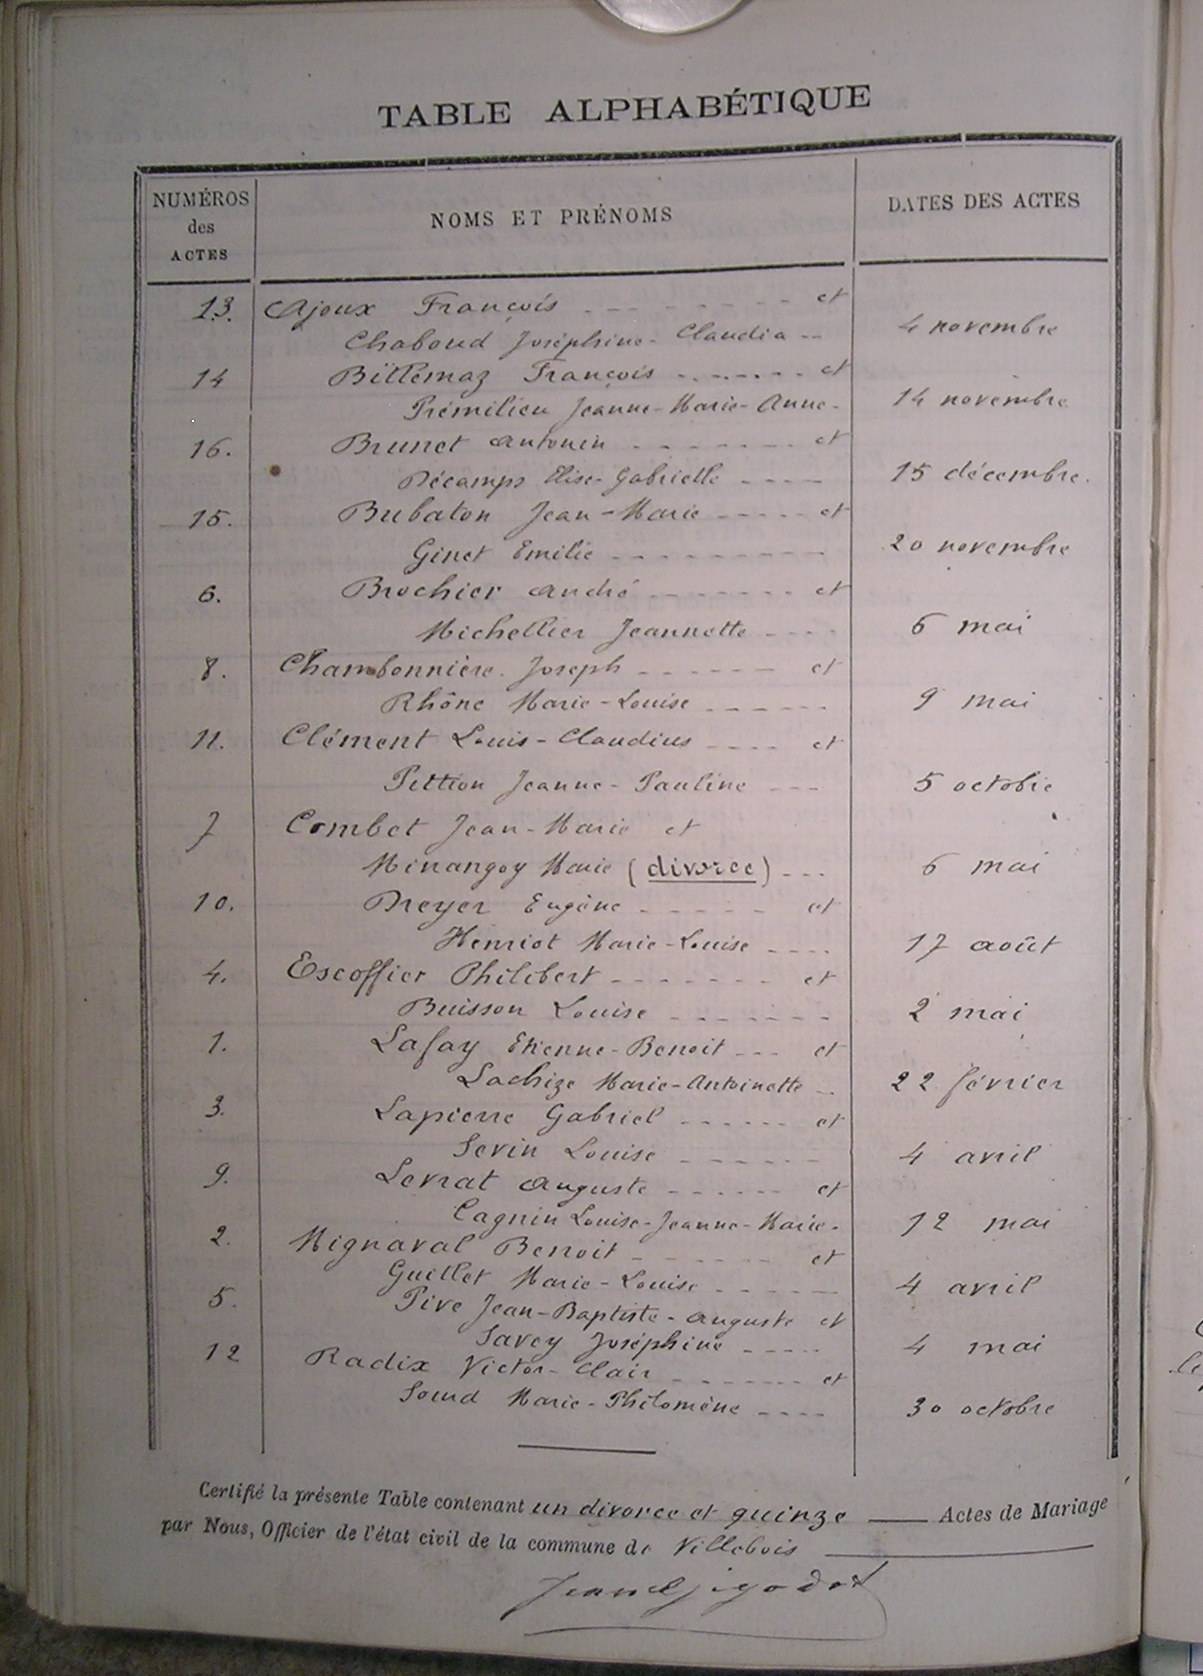 TABLE ALPHABÉTIQUE
NUMÉROS des ACTES
NOMS ET PRÉNOMS
DATES DES ACTES
13. Ajoux François et
Chaboud Joséphine-Claudia 4 novembre
14 Billemaz François et
Prémilieu Jeanne-Marie-Anne 14 novembre
16. Brunet Antonin et
Décamps Elise-Gabrielle 15 décembre.
15. Bubaton Jean-Marie et
Ginet Emilie 20 novembre
6. Brochier André et
Michellier Jeannette 6 mai
8. Chambonnière Joseph et
Rhône Marie-Louise 9 mai
11. Clément Louis-Claudius et
Pittion Jeanne-Pauline 5 octobre
7 Combet Jean-Marie et
Minangoy Marie (divorce) 6 mai
10. Dreyer Eugène et
Henriot Marie-Louise 17 août
4. Escoffier Philibert et
Buisson Louise 2 mai
1. Lafay Etienne-Benoit et
Lachize Marie-Antoinette 22 février
3. Lapierre Gabriel et
Sevin Louise 4 avril
9. Levrat Auguste et
Cagnin Louise-Jeanne-Marie 12 mai
2. Mignaval Benoit et
Guillet Marie-Louise 4 avril
5. Pive Jean-Baptiste-Auguste et
Savey Joséphine 4 mai
12 Radix Victor-Clair et
Soud Marie-Philomène 30 octobre
Certifié la présente Table contenant un divorce et quinze Actes de Mariage
par Nous, Officier de l'état civil de la commune de Villebois